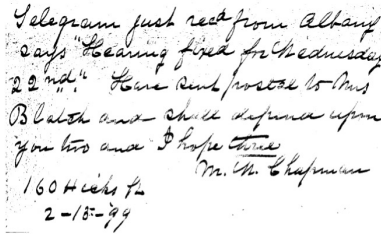 Telegram just recd from Albany
says "Hearing fixed for Wednesday
22nd." Have sent postal to Mrs
Blatch and shall depend upon
you two and I hope three
M. W. Chapman
160 Hicks St
2-15-99